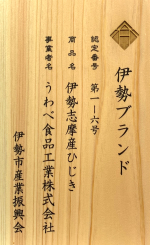 伊勢ブランド
認定番号 第一ー六号
商品名 伊勢志摩産ひじき
事業者名 うわべ食品工業株式会社
伊勢市産業振興会